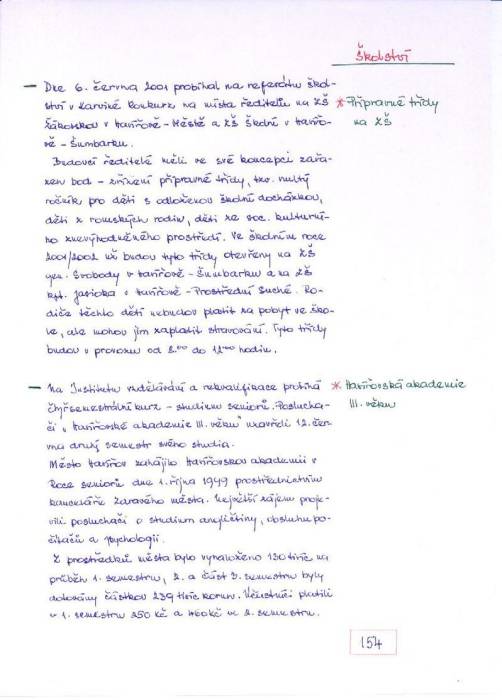 Školství
— Dne 6. června 2001 probíhal na referátu škol-
ství v Karviné konkurz na místa ředitelů na ZŠ
Žákovskou v Havířově - Městě a ZŠ Školní v Havířo-
vě - Šumbarku.
* Přípravné třídy
na ZŠ
Budoucí ředitelé měli ve své koncepci zařa-
zen bod - zřízení přípravné třídy, tzv. nultý
ročník pro děti s odloženou školní docházkou,
děti z romských rodin, děti ze soc. kulturní-
ho znevýhodněného prostředí. Ve školním roce
2001/2002 už budou tyto třídy otevřeny na ZŠ
gen. Svobody v Havířově - Šumbarku a na ZŠ
kpt. Jasioka v Havířově - Prostřední Suché. Ro-
diče těchto dětí nebudou platit za pobyt ve ško-
le, ale mohou jim zaplatit stravování. Tyto třídy
budou v provozu od 8.00 do 12.00 hodin.
— Na Institutu vzdělávání a rekvalifikace probíhá
čtyřsemestrální kurz - studium seniorů. Poslucha-
či „Havířovské akademie III. věku" uzavřeli 12. červ-
na druhý semestr svého studia.
* Havířovská akademie
III. věku
Město Havířov zahájilo Havířovskou akademii v
Roce seniorů dne 1. října 1999 prostřednictvím
kanceláře Zdravého města. Největší zájem proje-
vili posluchači o studium angličtiny, obsluhu po-
čítačů a psychologii.
Z prostředků města bylo vynaloženo 130 tisíc na
průběh 1. semestru, 2. a část 3. semestru byly
dotovány částkou 239 tisíc korun. Účastníci platili
v 1. semestru 250 Kč a 460 Kč ve 2. semestru.
154